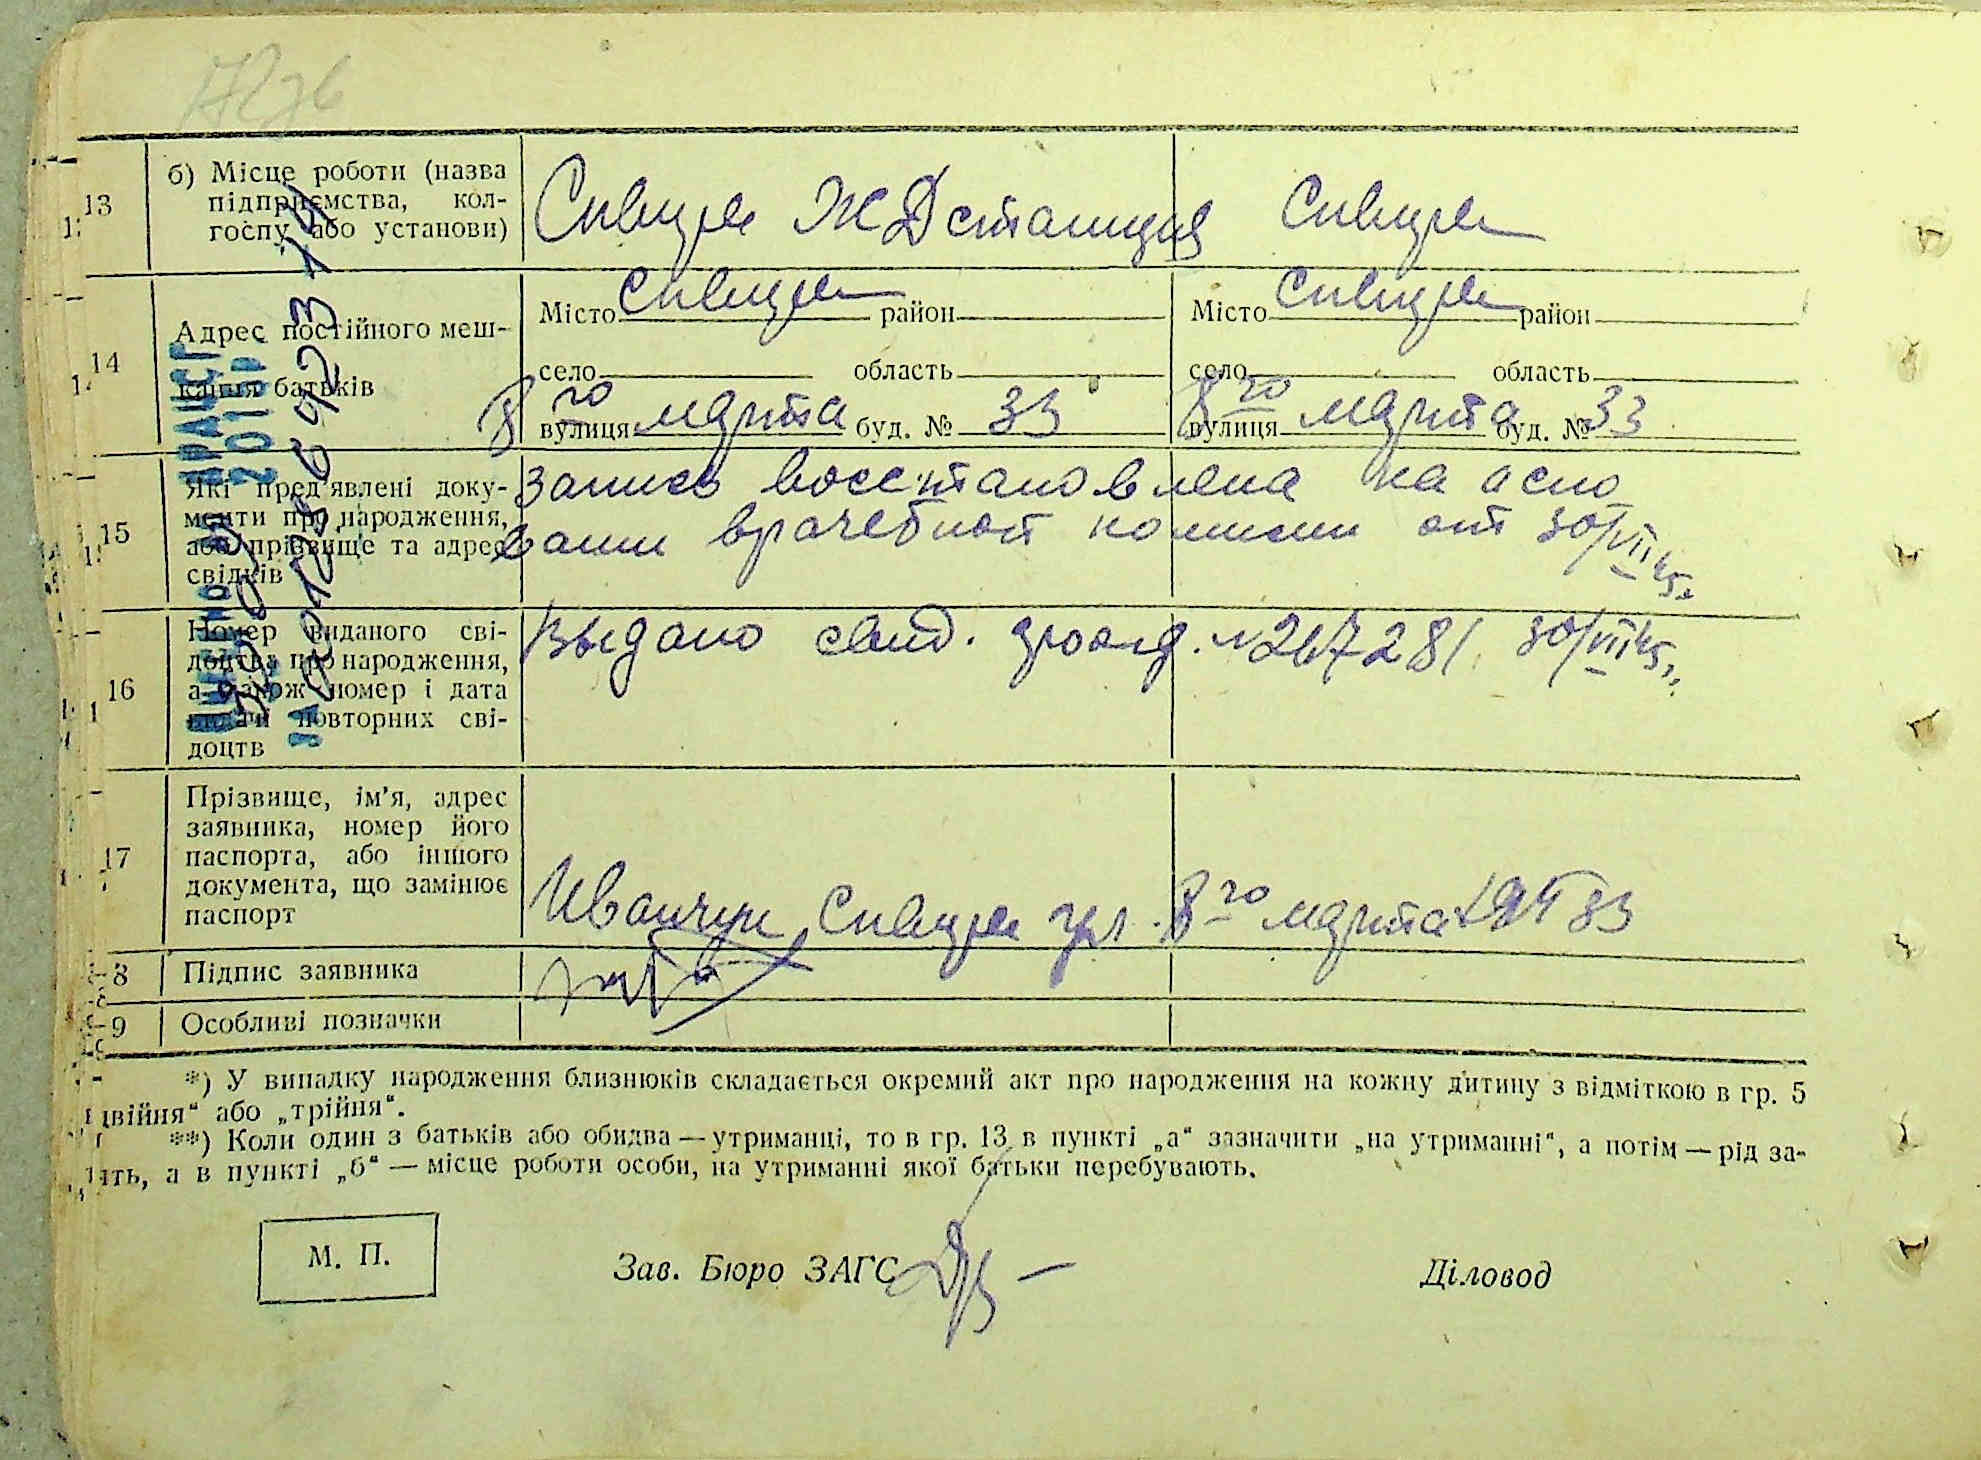 13
б) Місце роботи (назва
підприємства, кол-
госпу або установи)
Сквира ЖД станция
Сквира
14
Адрес постійного меш-
кання батьків
Місто Сквира район
село область
8го вулиця марта буд. № 33
Місто Сквира район
село область
8го вулиця марта буд. № 33
15
Які пред'явлені доку-
менти про народження,
або прізвище та адрес
свідків
Запись восстановлена на осно
вании врачебной комисии от 30/VII 45
16
Номер виданого сві-
доцтва про народження,
а також номер і дата
видачі повторних сві-
доцтв
Выдано свид. № 267281 30/VII 45
17
Прізвище, ім'я, адрес
заявника, номер його
паспорта, або іншого
документа, що замінює
паспорт
Иванчук Сквира ул. 8го марта 33
8
Підпис заявника
9
Особливі позначки
*) У випадку народження близнюків складається окремий акт про народження на кожну дитину з відміткою в гр. 5
двійня“ або „трійня“.
**) Коли один з батьків або обидва — утриманці, то в гр. 13 в пункті „а“ зазначити „на утриманні“, а потім — рід за-
нять, а в пункті „б“ — місце роботи особи, на утриманні якої батьки перебувають.
М. П.
Зав. Бюро ЗАГС
Діловод